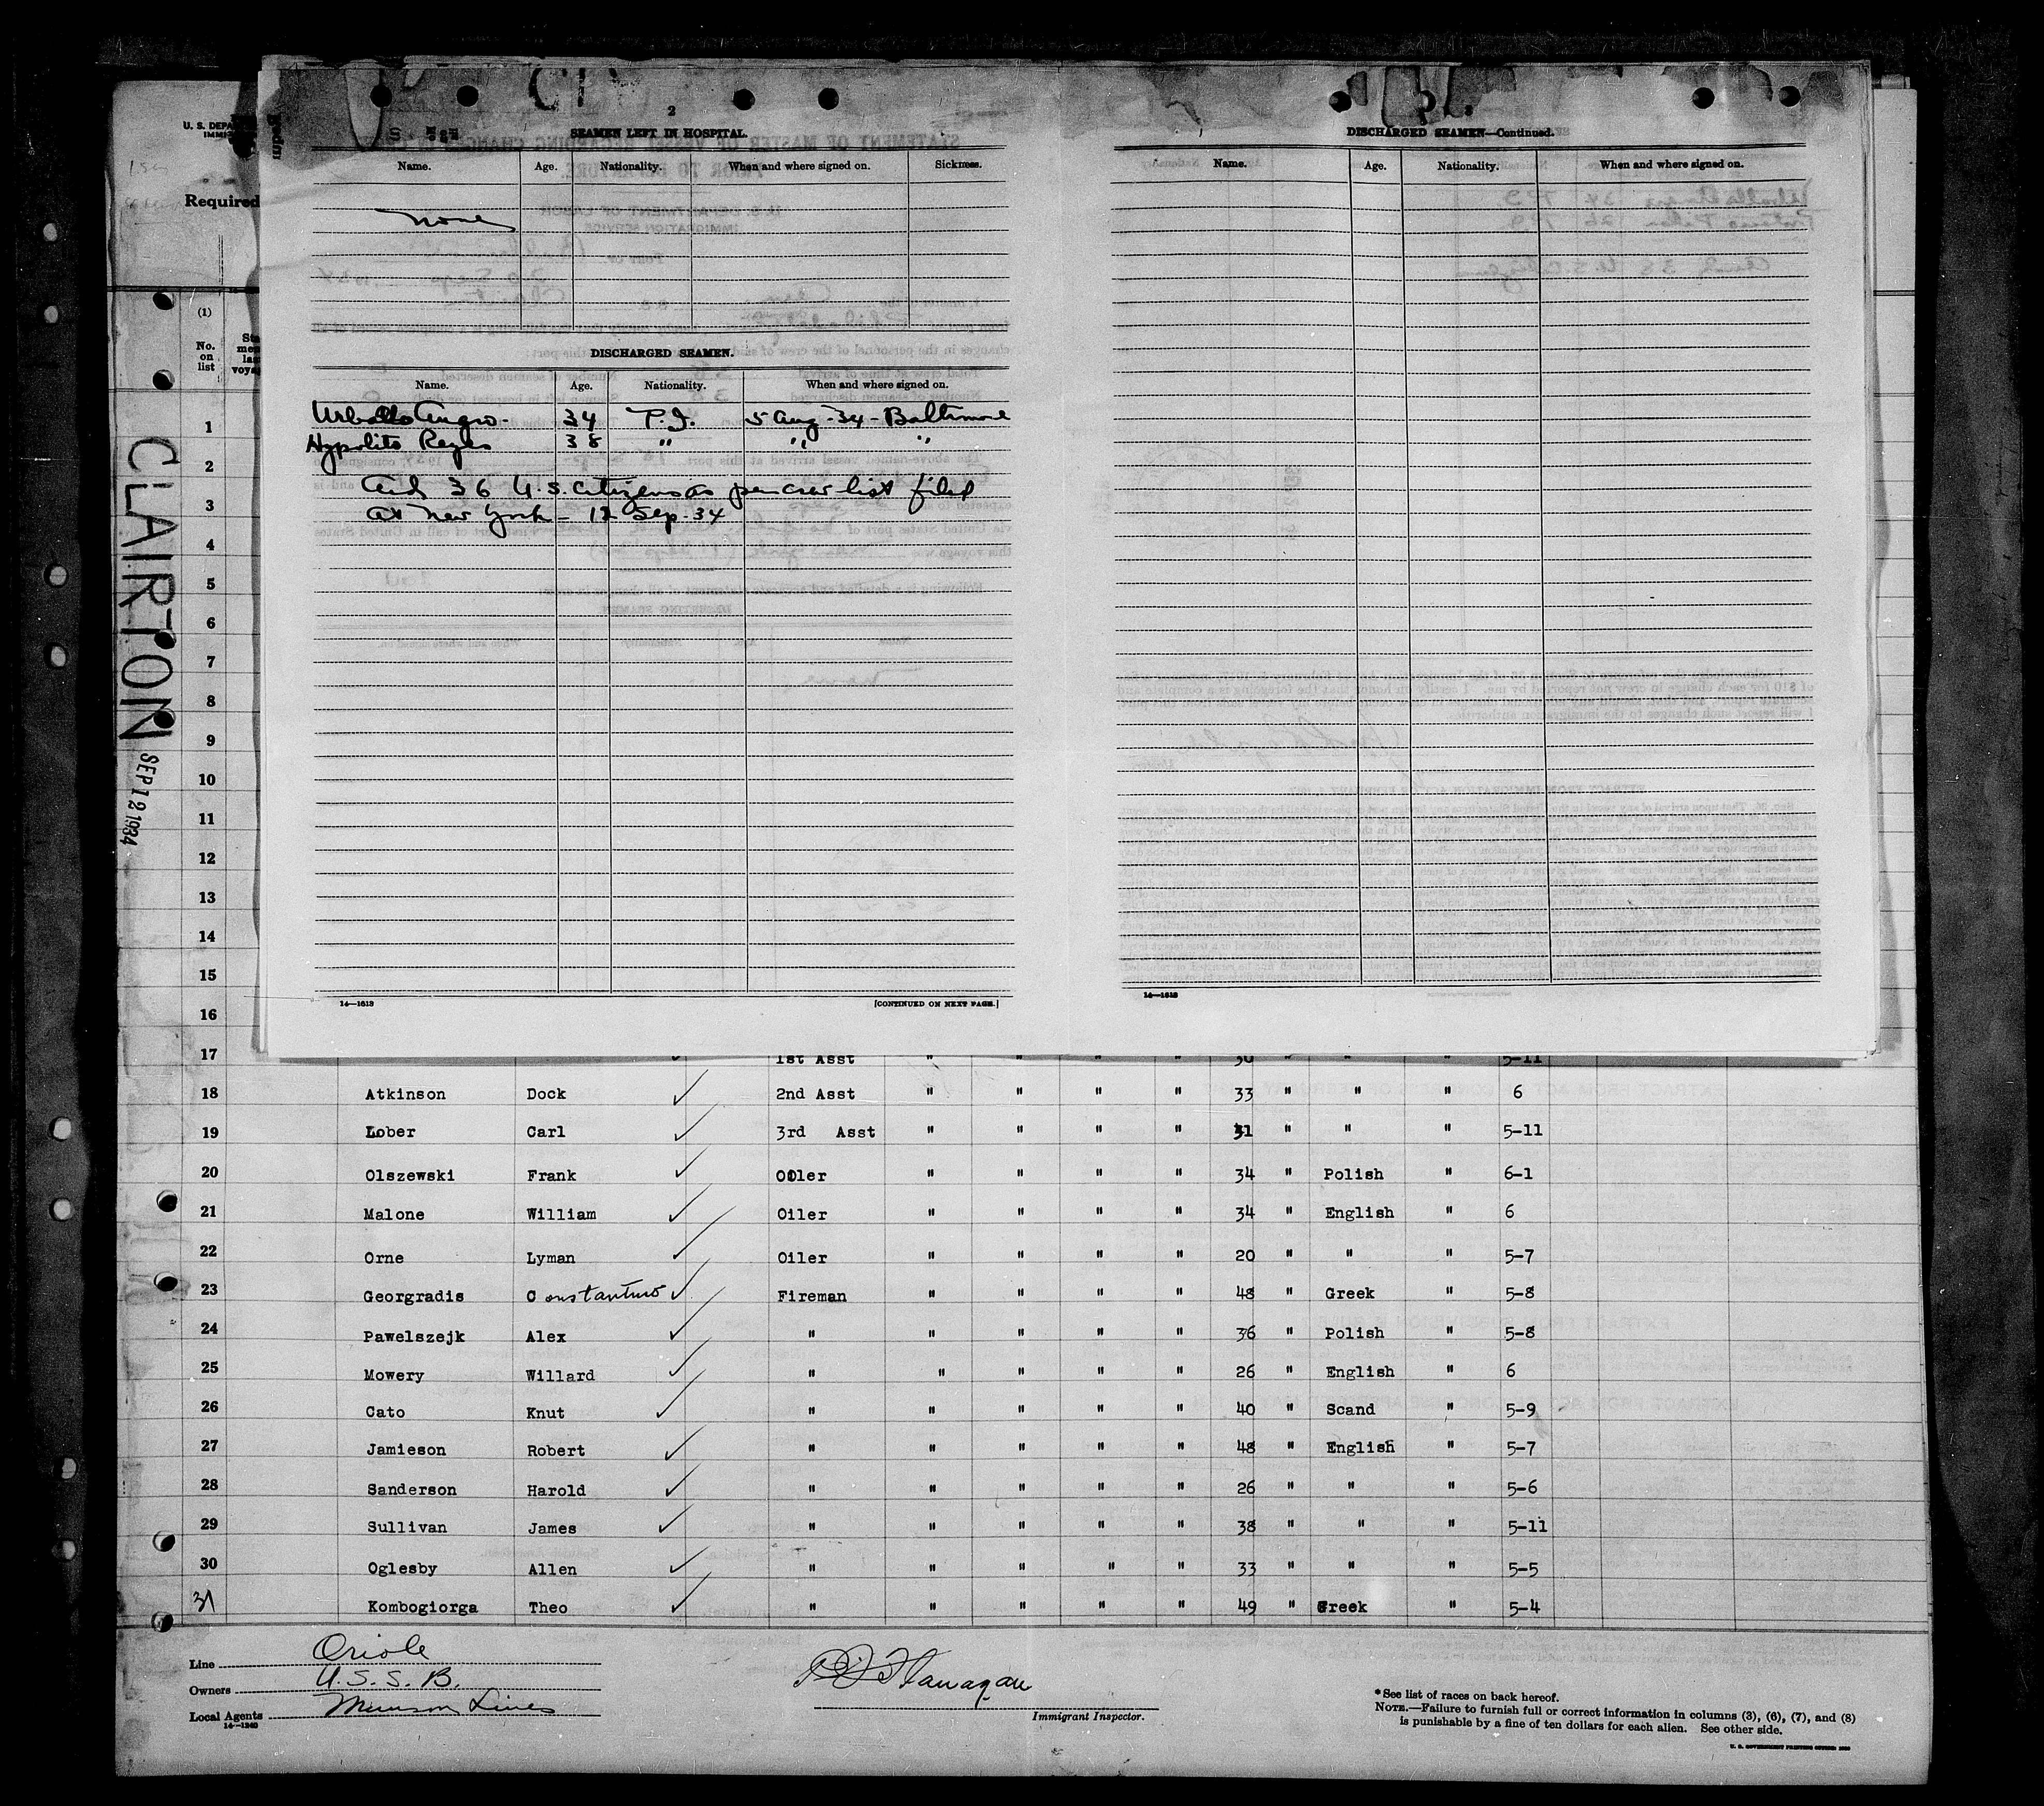 U. S. DEPA
IMMI
Required
(1)
No. on list
CLAIRTON
SEP 12 1934
2
SEAMEN LEFT IN HOSPITAL.
Name. Age. Nationality. When and where signed on. Sickness.
none
DISCHARGED SEAMEN.
Name. Age. Nationality. When and where signed on.
34 P.I. 5 Aug-34-Baltimore
Hypolito Reyes 38 " " "
And 36 U.S. citizens as per crew list filed
at New York - 12 Sep-34
14—1613 [CONTINUED ON NEXT PAGE.]
DISCHARGED SEAMEN—Continued.
Name. Age. Nationality. When and where signed on.
14—1613
1
2
3
4
5
6
7
8
9
10
11
12
13
14
15
16
17 1st Asst " " " " 30 " " " 5-11
18 Atkinson Dock ✓ 2nd Asst " " " " 33 " " " 6
19 Lober Carl ✓ 3rd Asst " " " " 31 " " " 5-11
20 Olszewski Frank ✓ Oiler " " " " 34 " Polish " 6-1
21 Malone William ✓ Oiler " " " " 34 " English " 6
22 Orne Lyman ✓ Oiler " " " " 20 " " " 5-7
23 Georgradis Constantino ✓ Fireman " " " " 48 " Greek " 5-8
24 Pawelszejk Alex ✓ " " " " " 36 " Polish " 5-8
25 Mowery Willard ✓ " " " " " 26 " English " 6
26 Cato Knut ✓ " " " " " 40 " Scand " 5-9
27 Jamieson Robert ✓ " " " " " 48 " English " 5-7
28 Sanderson Harold ✓ " " " " " 26 " " " 5-6
29 Sullivan James ✓ " " " " " 38 " " " 5-11
30 Oglesby Allen ✓ " " " " " 33 " " " 5-5
31 Kombogiorga Theo ✓ " " " " " 49 " Greek " 5-4
Line Oriole
Owners U.S.S.B.
Local Agents Munson Lines
14—1240
Flanagan
Immigrant Inspector.
* See list of races on back hereof.
NOTE.—Failure to furnish full or correct information in columns (3), (6), (7), and (8)
is punishable by a fine of ten dollars for each alien. See other side.